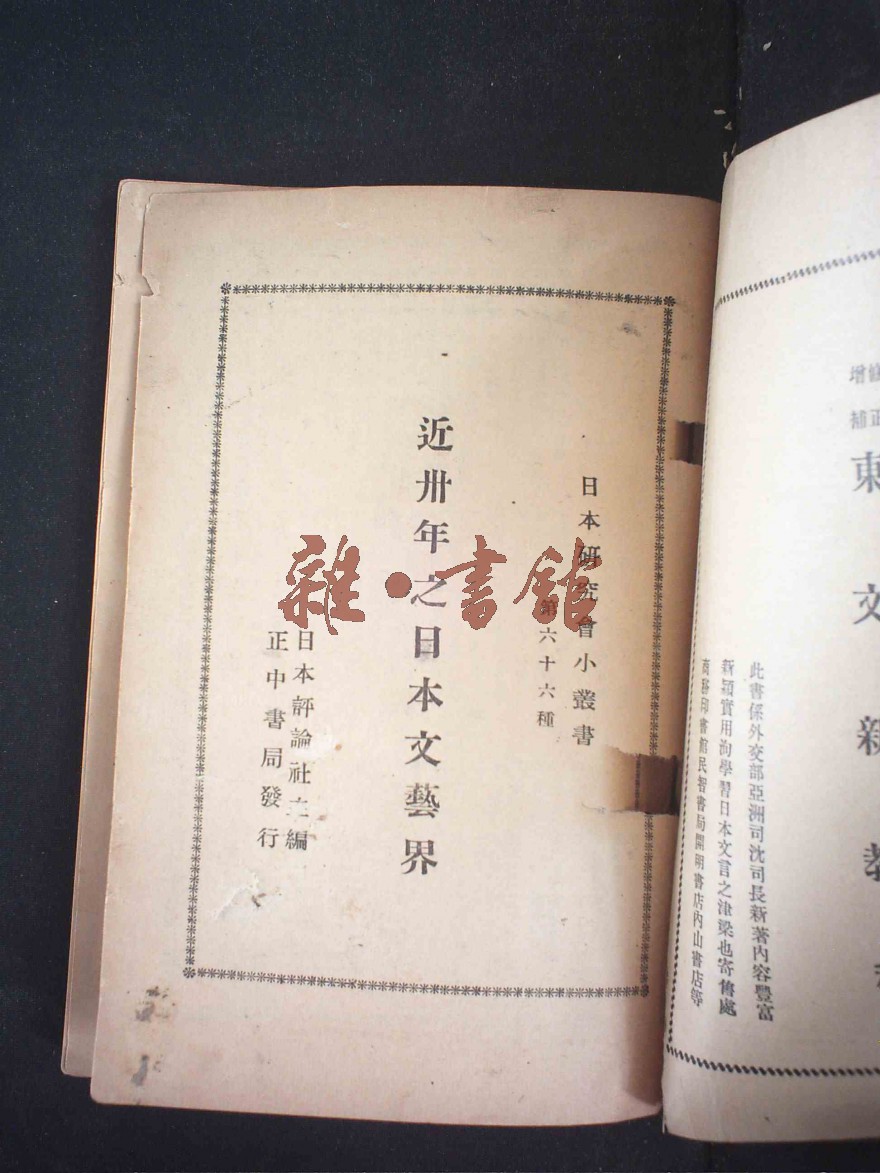 日本研究會小叢書
第六十六種
近卅年之日本文藝界
日本評論社主編
正中書局發行
雜·書館
增修
補正
東文新教
此書係外交部亞洲司沈司長新著內容豐富
新穎實用洵學習日本文言之津梁也寄售處
商務印書館民智書局開明書店內山書店等